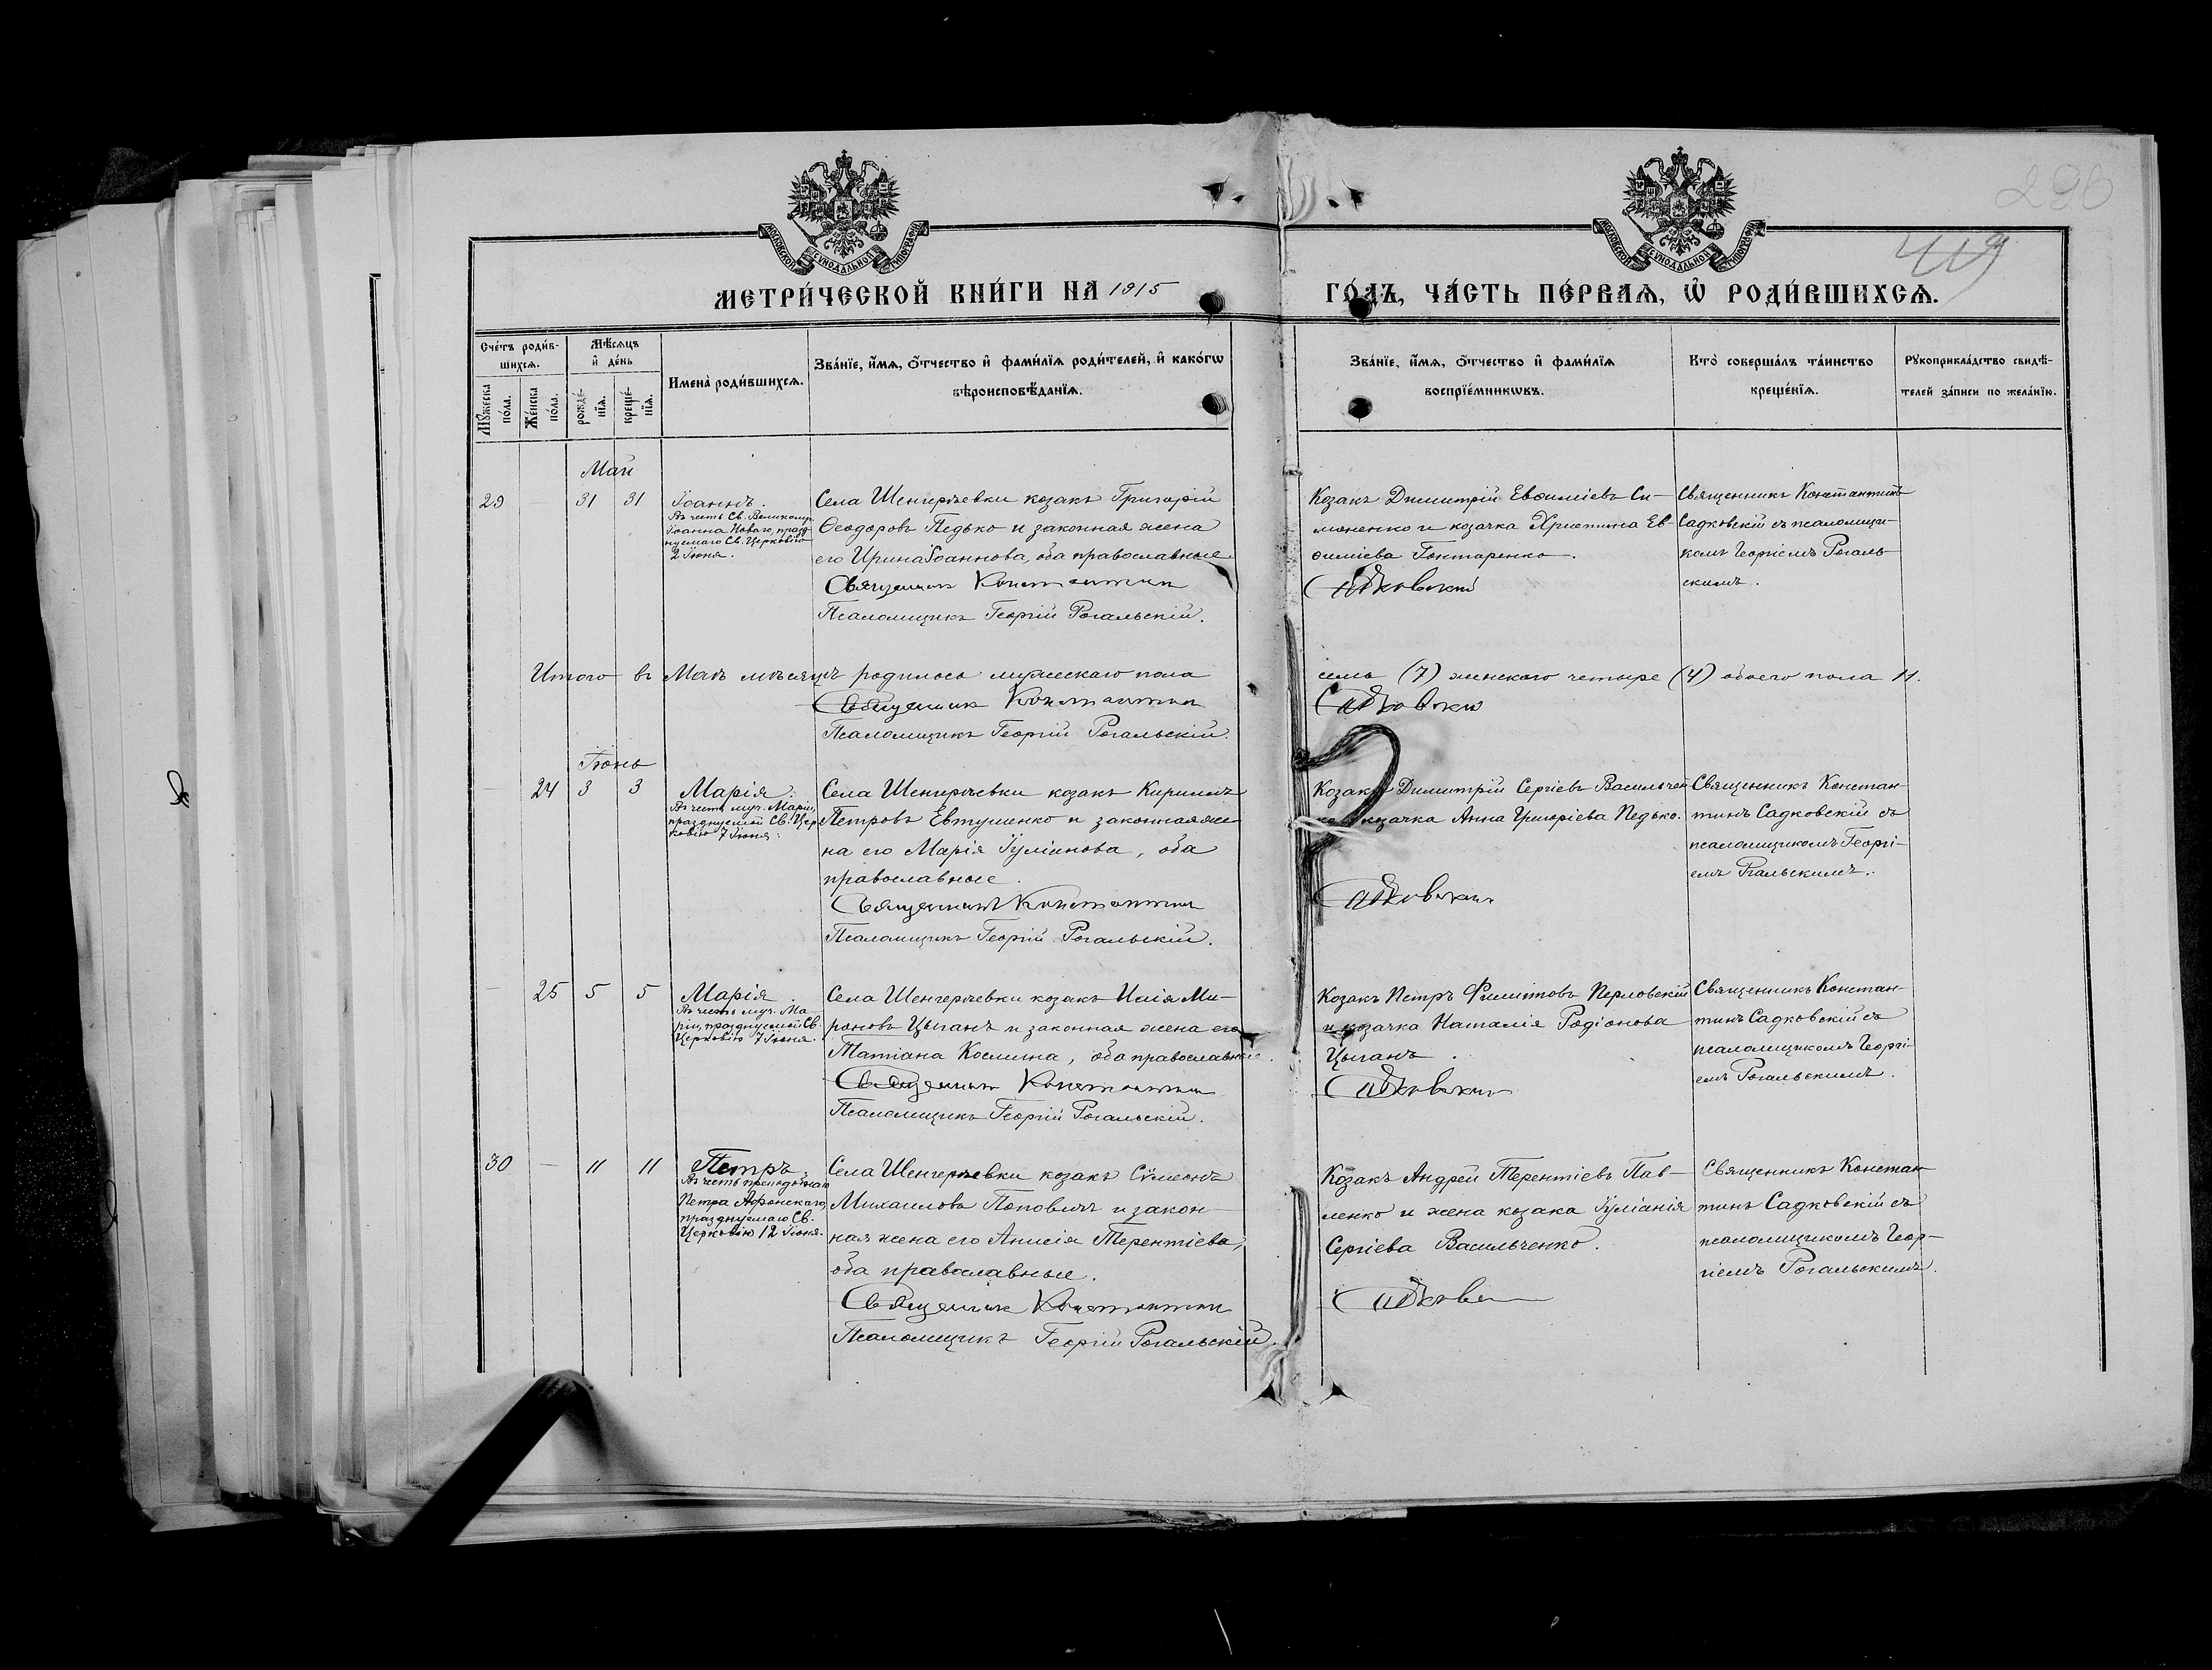 290
419
МОСКОВСКОЙ СѴНОДАЛЬНОЙ ТИПОГРАФІИ
МОСКОВСКОЙ СѴНОДАЛЬНОЙ ТИПОГРАФІИ
МЕТРИ́ЧЕСКОЙ КНИ́ГИ НА 1915
ГО́ДЪ, ЧА́СТЬ ПЕ́РВАѦ, Ѡ҆ РОДИ́ВШИХСѦ.
Сче́тъ роди́в-
шихсѧ.
Мꙋ́жеска по́ла.
Же́нска по́ла.
Мѣ́сѧцъ
и҆ де́нь
рожде́-
нїѧ.
креще́-
нїѧ.
Имена̀ роди́вшихсѧ.
Зва́нїе, и҆́мѧ, ѻ҆́тчество и҆ фами́лїѧ роди́телей, и҆ како́гѡ
вѣроисповѣ́данїѧ.
Зва́нїе, и҆́мѧ, ѻ҆́тчество и҆ фами́лїѧ
воспрїе́мникѡвъ.
Кто̀ соверша́лъ та́инство
креще́нїѧ.
Рꙋкоприкла́дство свидѣ́-
телей за́писи по жела́нїю.
Май
29 — 31 31
Іоаннъ.
Въ честь Св. Великому.
Іоанна Новаго, празд-
нуемаго Св. Церковію
2 Іюня.
Села Шенгерѣевки козакъ Григорій
Ѳеодоровъ Педько и законная жена
его Ирина Іоаннова, оба православные.
Священникъ Константинъ
Псаломщикъ Георгій Рогальскій.
Козакъ Димитрій Евѳиміевъ Си-
моненко и козачка Христина Ев-
ѳиміева Гонтаренко.
Садковскій
Священникъ Константинъ
Садковскій съ псаломщи-
комъ Георгіемъ Рогаль-
скимъ.
Итого въ Маѣ мѣсяцѣ родилось мужескаго пола
семь (7) женскаго четыре (4) обоего пола 11.
Священникъ Константинъ
Садковскій
Псаломщикъ Георгій Рогальскій.
Іюнь
— 24 3 3
Марія.
Въ честь муч. Маріи,
празднуемой Св. Цер-
ковію 7 Іюня.
Села Шенгерѣевки козакъ Кириллъ
Петровъ Евтушенко и законная же-
на его Марія Іуліанова, оба
православные.
Священникъ Константинъ
Псаломщикъ Георгій Рогальскій.
Козакъ Димитрій Сергіевъ Васильчен-
козачка Анна Григоріева Педько.
Садковскій
Священникъ Констан-
тинъ Садковскій съ
псаломщикомъ Георгі-
емъ Рогальскимъ.
— 25 5 5
Марія.
Въ честь муч. Ма-
ріи, празднуемой Св.
Церковію 7 Іюня.
Села Шенгерѣевки козакъ Илія Ми-
роновъ Цыганъ и законная жена его
Татіана Космина, оба православные.
Священникъ Константинъ
Псаломщикъ Георгій Рогальскій.
Козакъ Петръ Филиповъ Перловскій
и козачка Наталія Родіонова
Цыганъ.
Садковскій
Священникъ Констан-
тинъ Садковскій съ
псаломщикомъ Георгі-
емъ Рогальскимъ.
30 — 11 11
Петръ.
Въ честь преподобнаго
Петра Аѳонскаго,
празднуемаго Св.
Церковію 12 Іюня.
Села Шенгерѣевки козакъ Сѵмеонъ
Михаиловъ Поповичъ и закон-
ная жена его Анисія Терентіева,
оба православные.
Священникъ Константинъ
Псаломщикъ Георгій Рогальскій.
Козакъ Андрей Терентіевъ Пав-
ленко и жена козака Іуліанія
Сергіева Васильченко.
Садковс
Священникъ Констан-
тинъ Садковскій съ
псаломщикомъ Геор-
гіемъ Рогальскимъ.